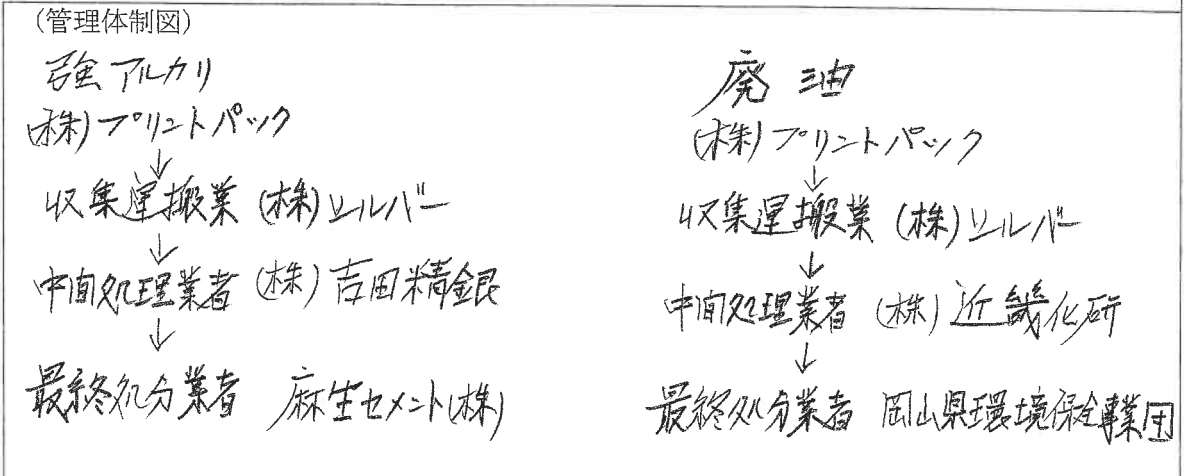 (管理体制図)
強アルカリ
(株)プリントパック
↓
収集運搬業 (株)シルバー
↓
中間処理業者 (株)吉田精銀
↓
最終処分業者 麻生セメント(株)
廃油
(株)プリントパック
↓
収集運搬業 (株)シルバー
↓
中間処理業者 (株)近畿化研
↓
最終処分業者 岡山県環境保全事業団